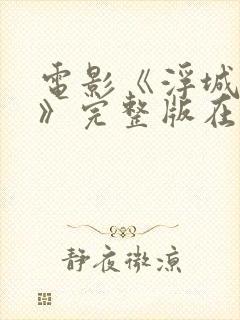 電影《浮城
》完整版在
静夜微涼